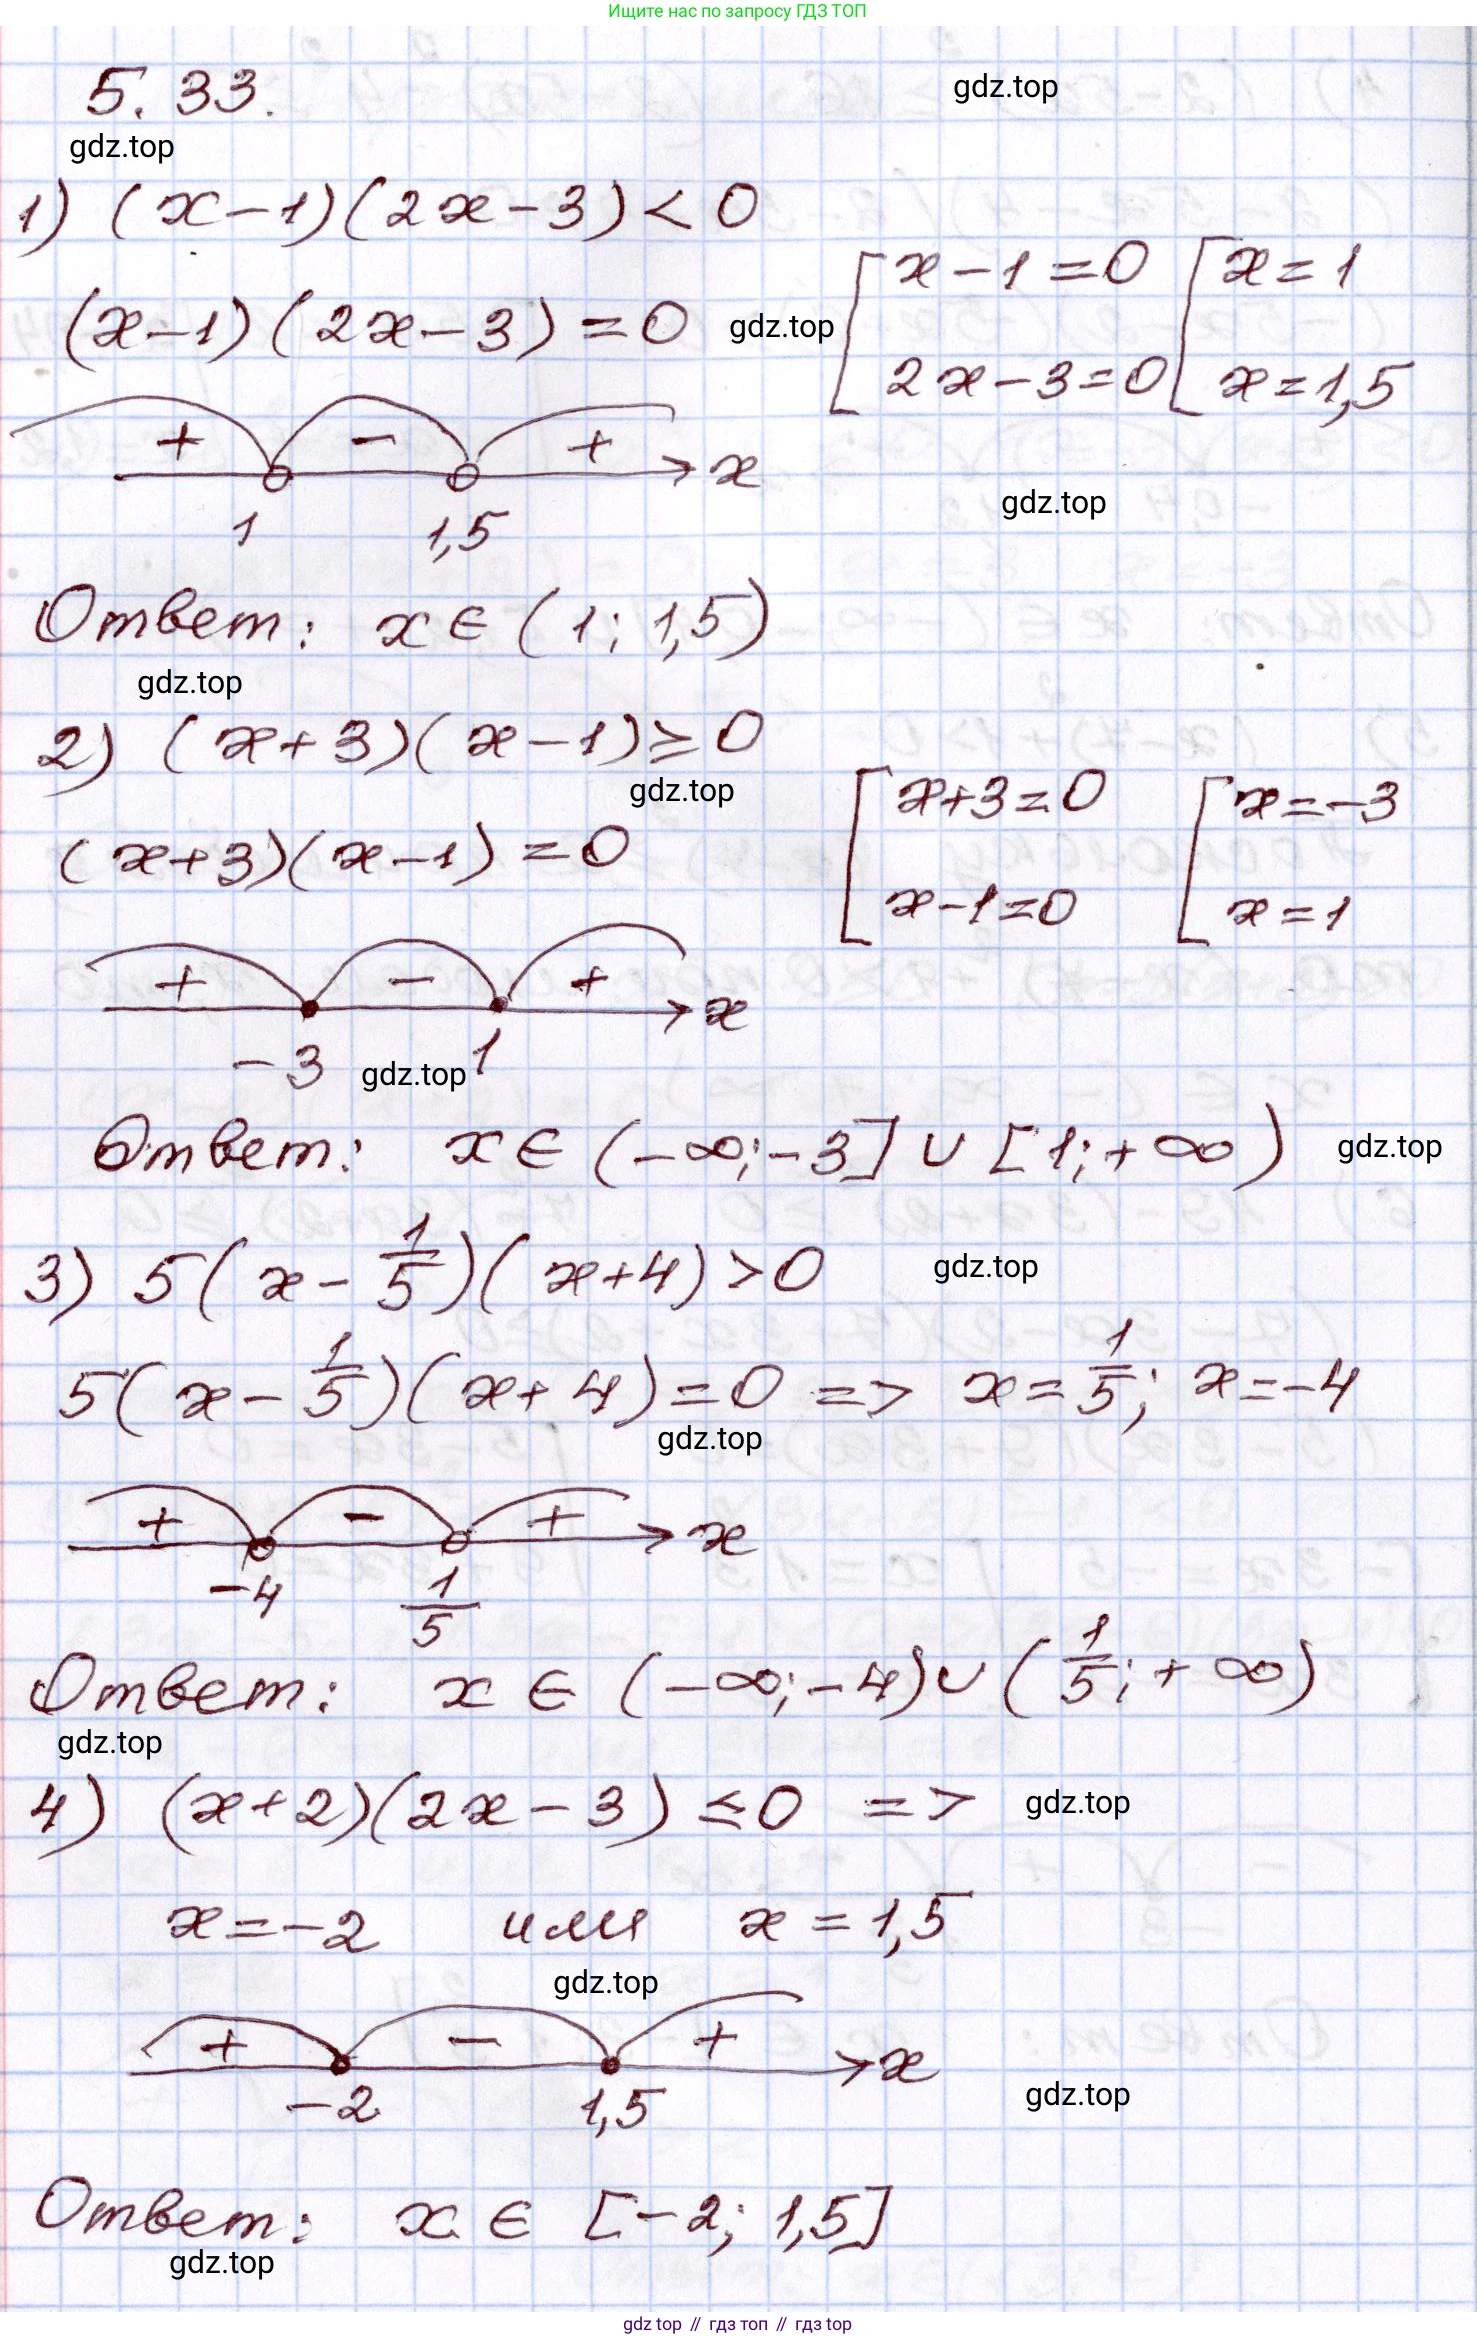 Ищите нас по запросу ГДЗ ТОП
5.33.
gdz.top
gdz.top
1) (x-1)(2x-3)<0
(x-1)(2x-3)=0
gdz.top
[x-1=0 [x=1
2x-3=0 x=1,5
+ - + x
1 1,5
gdz.top
Ответ: x∈(1; 1,5)
gdz.top
2) (x+3)(x-1)≥0
gdz.top
(x+3)(x-1)=0
[x+3=0 [x=-3
x-1=0 x=1
+ - + x
-3 1
gdz.top
Ответ: x∈(-∞;-3]∪[1;+∞)
gdz.top
3) 5(x-1/5)(x+4)>0
gdz.top
5(x-1/5)(x+4)=0 => x=1/5; x=-4
gdz.top
+ - + x
-4 1/5
Ответ: x∈(-∞;-4)∪(1/5;+∞)
gdz.top
4) (x+2)(2x-3)≤0 =>
gdz.top
x=-2 или x=1,5
gdz.top
+ - + x
-2 1,5
gdz.top
Ответ: x∈[-2; 1,5]
gdz.top
gdz top // гдз топ // гдз top